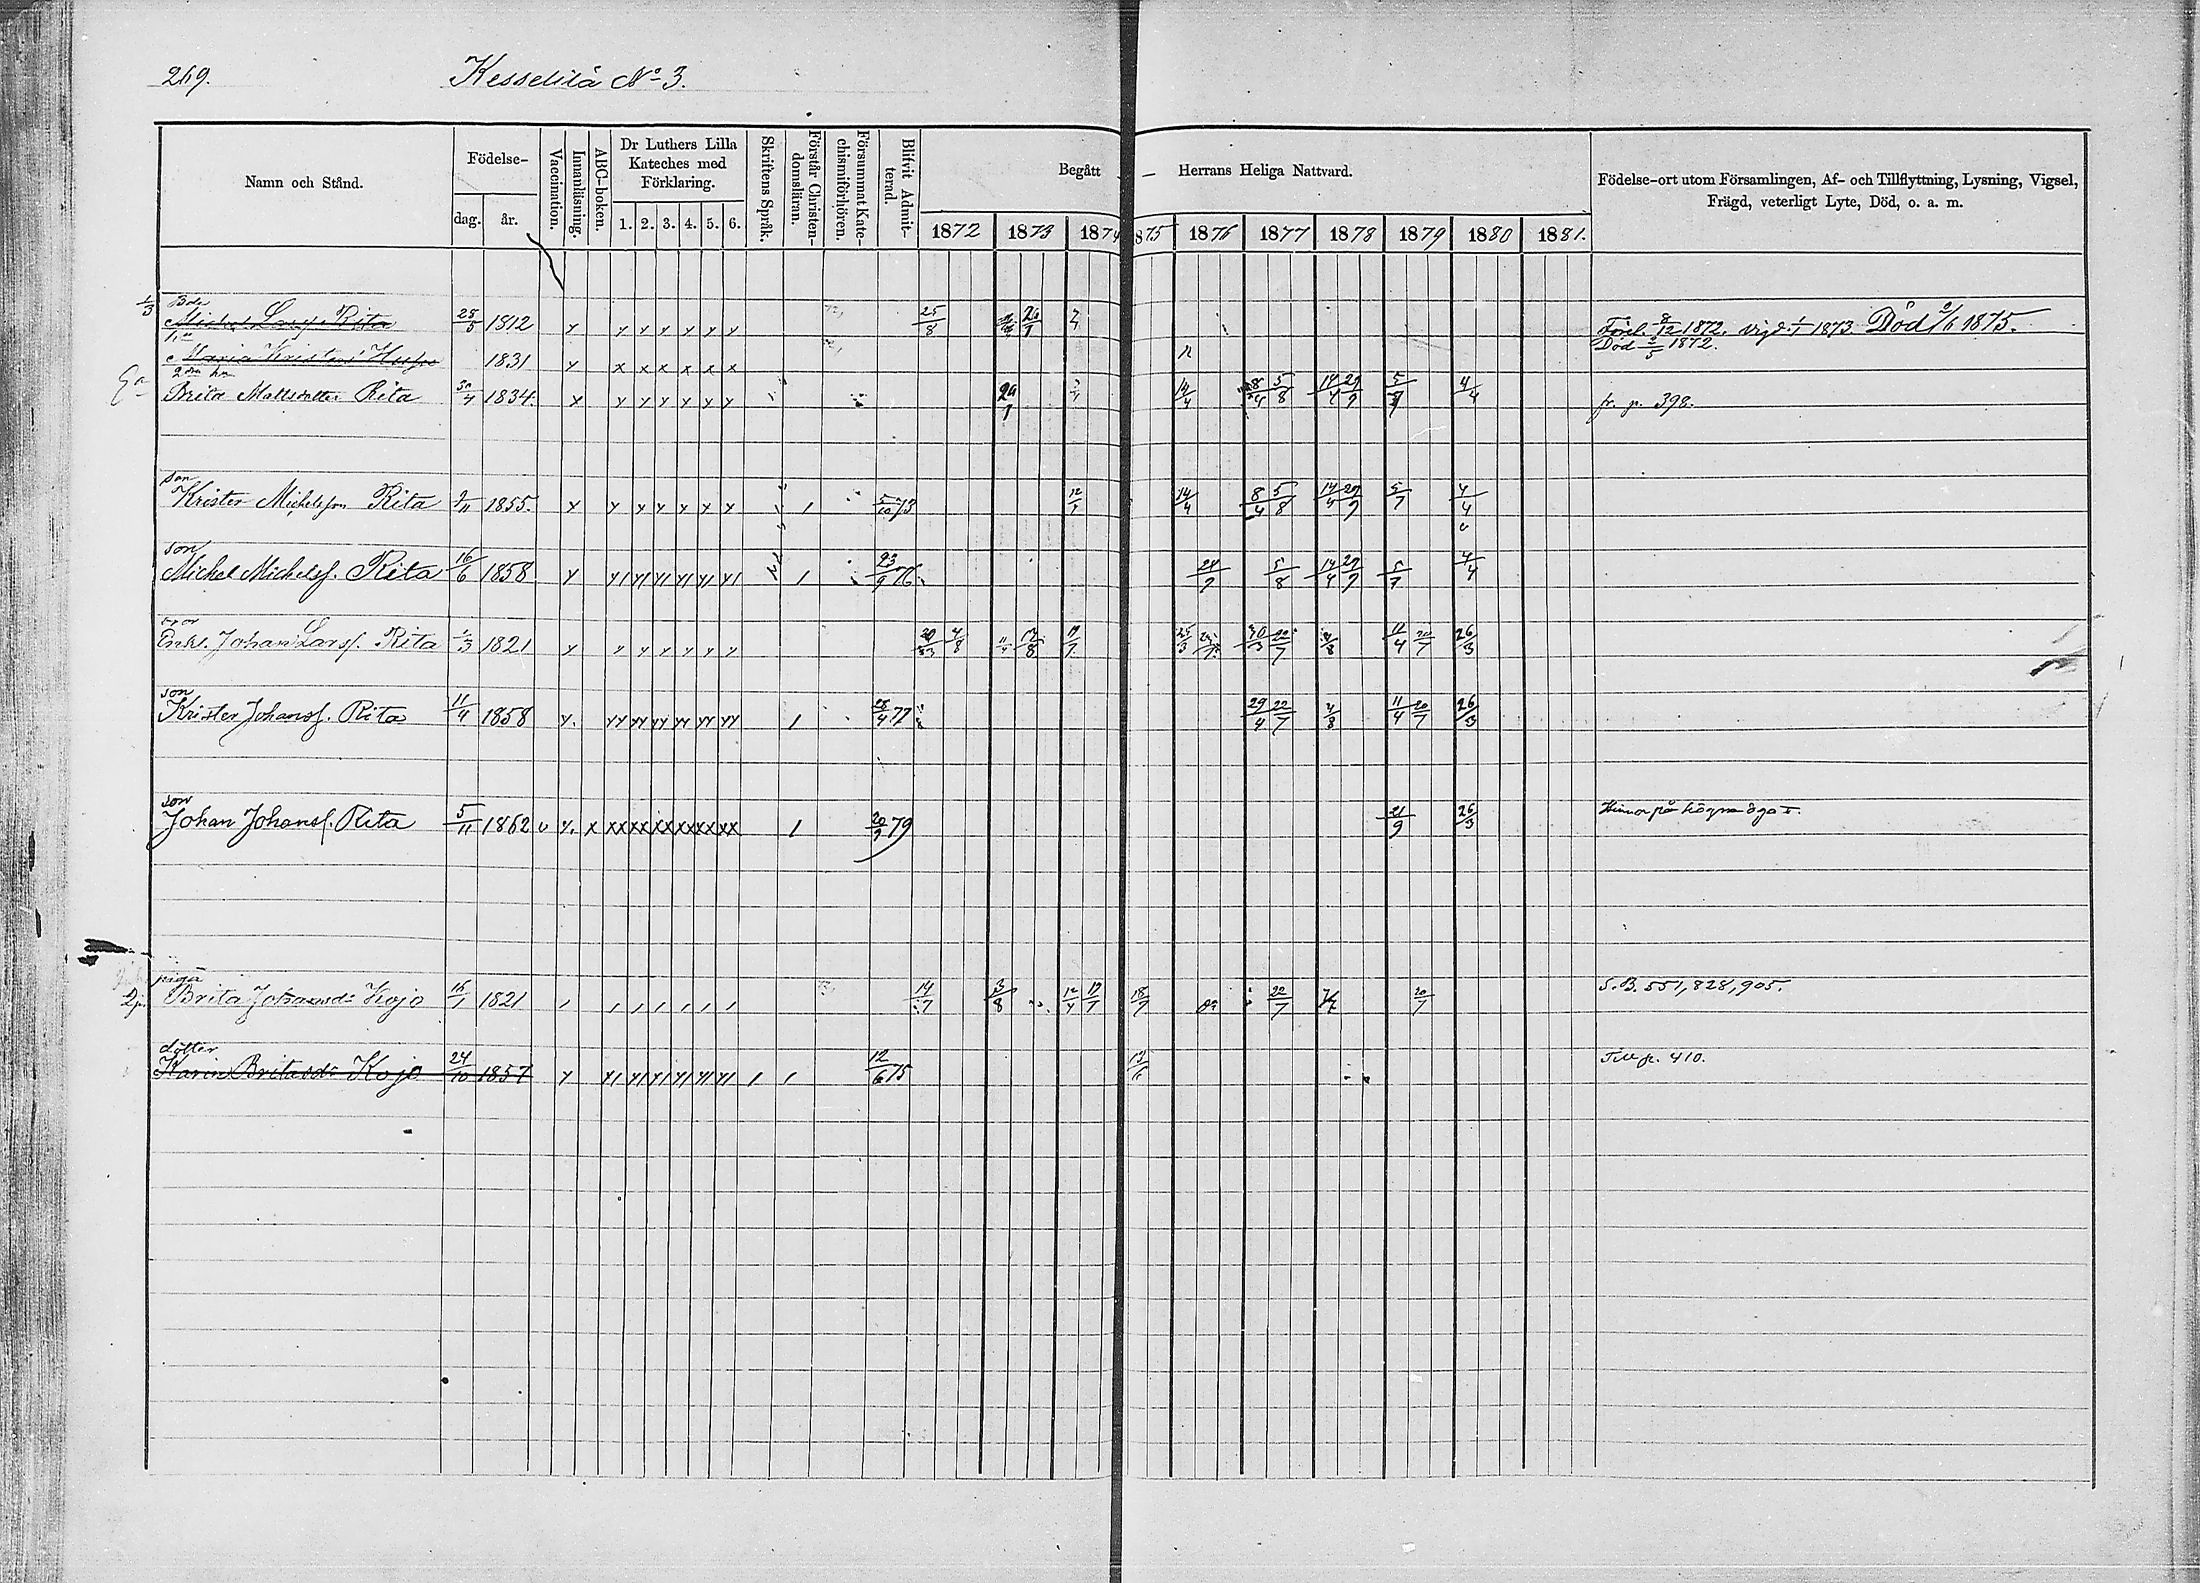 269. Kesselilä No 3.
Namn och Stånd. Födelse- dag. år. Vaccination. Innanläsning. ABC-boken. Dr Luthers Lilla Kateches med Förklaring. 1. 2. 3. 4. 5. 6. Skriftens Språk. Förstår Christendomsläran. Försummat Katechismiförhören. Blifvit Admitterad. Begått Herrans Heliga Nattvard. 1872 1873 1874 1875 1876 1877 1878 1879 1880 1881. Födelse-ort utom Församlingen, Af- och Tillflyttning, Lysning, Vigsel, Frägd, veterligt Lyte, Död, o. a. m.
1/3 Bde
Michel Larss. Rita 1812 y y y y y y y 25/8 8/12 1872. vigd 1873 Död 1875.
Maria Kristers 1831 y x x x x x x Död 2/5 1872.
Brita Mattsdotter Rita 1834. y y y y y y y 14/4 5/8 4/4 fr. p. 398.
son
Krister Michelsson Rita 1855. y y y y y y y 73 14/4 8/4 5/8 14/4 29/9 5/7 4/4
son
Michel Michelss. Rita 16/6 1858 y 23/9 76 24/9 5/8 14/4 29/9 5/7 4/4
Enkl. Johan Larss. Rita 1/3 1821 y y y y y y y 4/8 22/7 11/4 20/7 26/3
son
Krister Johanss. Rita 11/4 1858 y. yy yy yy yy yy yy 77 29/4 22/7 11/4 20/7 26/3
son
Johan Johanss. Rita 5/11 1862 v y. x xx xx xx xx xx xx 20/9 79 21/9 26/3 på högra öga
piga
Brita Johansdr Kojo 1821 14/7 3/8 12/4 18/9 22/7 20/7 S.B. 551, 828, 905.
dotter
Karin Britasdr Kojo 24/10 1857 y 12/6 75 Till p. 410.